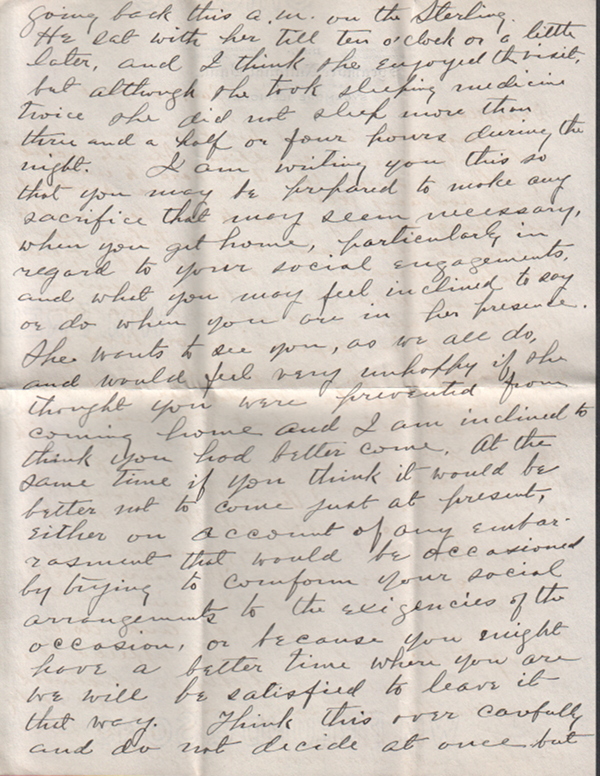 going back this a.m. on the Sterling.
He sat with her till ten o'clock or a little
later, and I think she enjoyed the visit,
but although she took sleeping medicine
twice she did not sleep more than
three and a half or four hours during the
night. I am writing you this so
that you may be prepared to make any
sacrifice that may seem necessary,
when you get home, particularly in
regard to your social engagements,
and what you may feel inclined to say
or do when you are in her presence.
She wants to see you, as we all do,
and would feel very unhappy if she
thought you were prevented from
coming home and I am inclined to
think you had better come. At the
same time if you think it would be
better not to come just at present,
either on account of any embar-
rasment that would be occasioned
by trying to comform your social
arrangements to the exigencies of the
occasion, or because you might
have a better time where you are
we will be satisfied to leave it
that way. Think this over carefully
and do not decide at once but